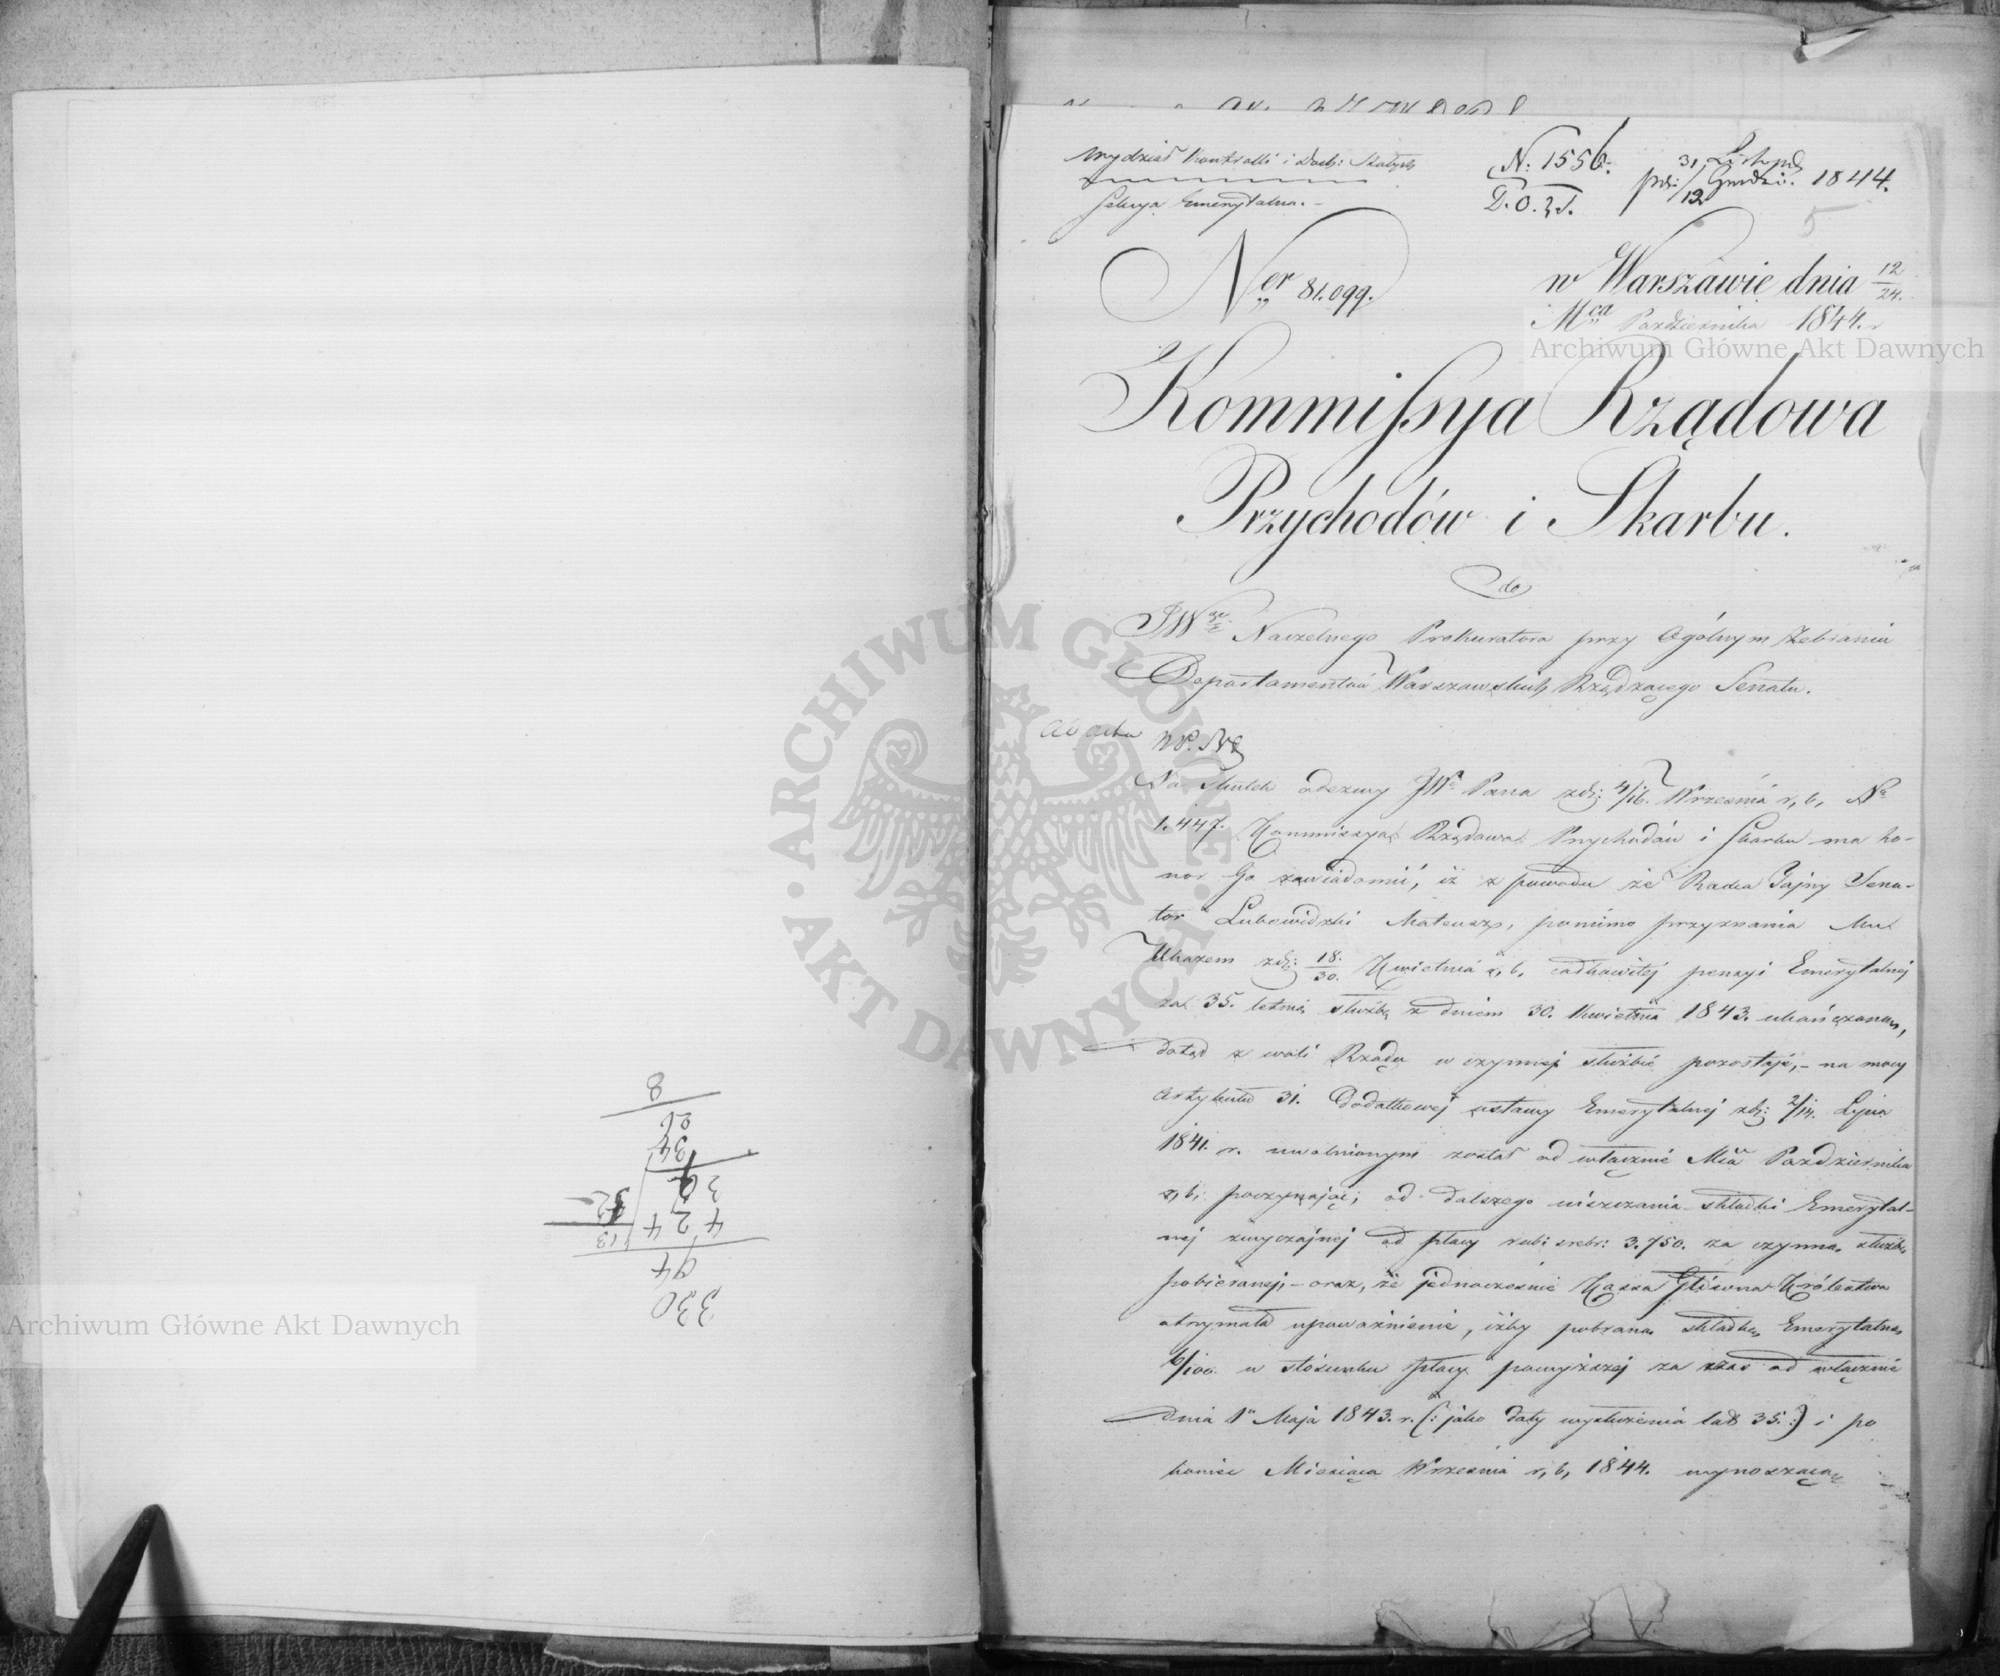 8
26
34
30
4 2 4
13
94
330
Wydział Kontrolli i Doch: Stałych
Sekcya Emerytalna.
N. 1556.
D.O.Z.S.
31 Listopd
/13 Grudni. 1844.
5
Ner 81.099.
w Warszawie dnia 12/24.
Mca Października 1844. r
Kommissya Rządowa
Przychodów i Skarbu.
do
JWgo Naczelnego Prokuratora przy Ogólnym Zebraniu
Departamentów Warszawskich Rządzącego Senatu.
Ad acta
Na skutek odezwy JWo Pana zd: 4/16. Września r, b, No
1.447. Kommissya Rządowa Przychodów i Skarbu ma ho-
nor Go zawiadomić, iż z powodu że Radca Tajny Sena-
tor Lubowidzki Mateusz, pomimo przyznania Mu
Ukazem zd: 18./30. Kwietnia r, b, całkowitej pensyi Emerytalnej
za 35. letnią służbę z dniem 30. Kwietnia 1843. ukończoną,
dotąd z woli Rządu w czynnej służbie pozostaje, - na mocy
Artykułu 31. Dodatkowej ustawy Emerytalnej zd: 2/14. Lipca
1841. r. uwolnionym został od włącznie Mca Października
r, b, poczynając, od dalszego uiszczania składki Emerytal-
nej zwyczajnej od płacy rubi srebr: 3.750. za czynną służbę
pobieranej, - oraz, że jednocześnie Kassa Główna Królestwa
otrzymała upoważnienie, iżby pobraną składkę Emerytalną
6/100. w stosunku płacy powyższej za czas od włącznie
dnia 1o Maja 1843. r. (: jako daty wysłużenia lat 35. :) i po
koniec Miesiąca Września r, b, 1844. wynoszącą
Archiwum Główne Akt Dawnych
Archiwum Główne Akt Dawnych
ARCHIWUM GŁÓWNE AKT DAWNYCH